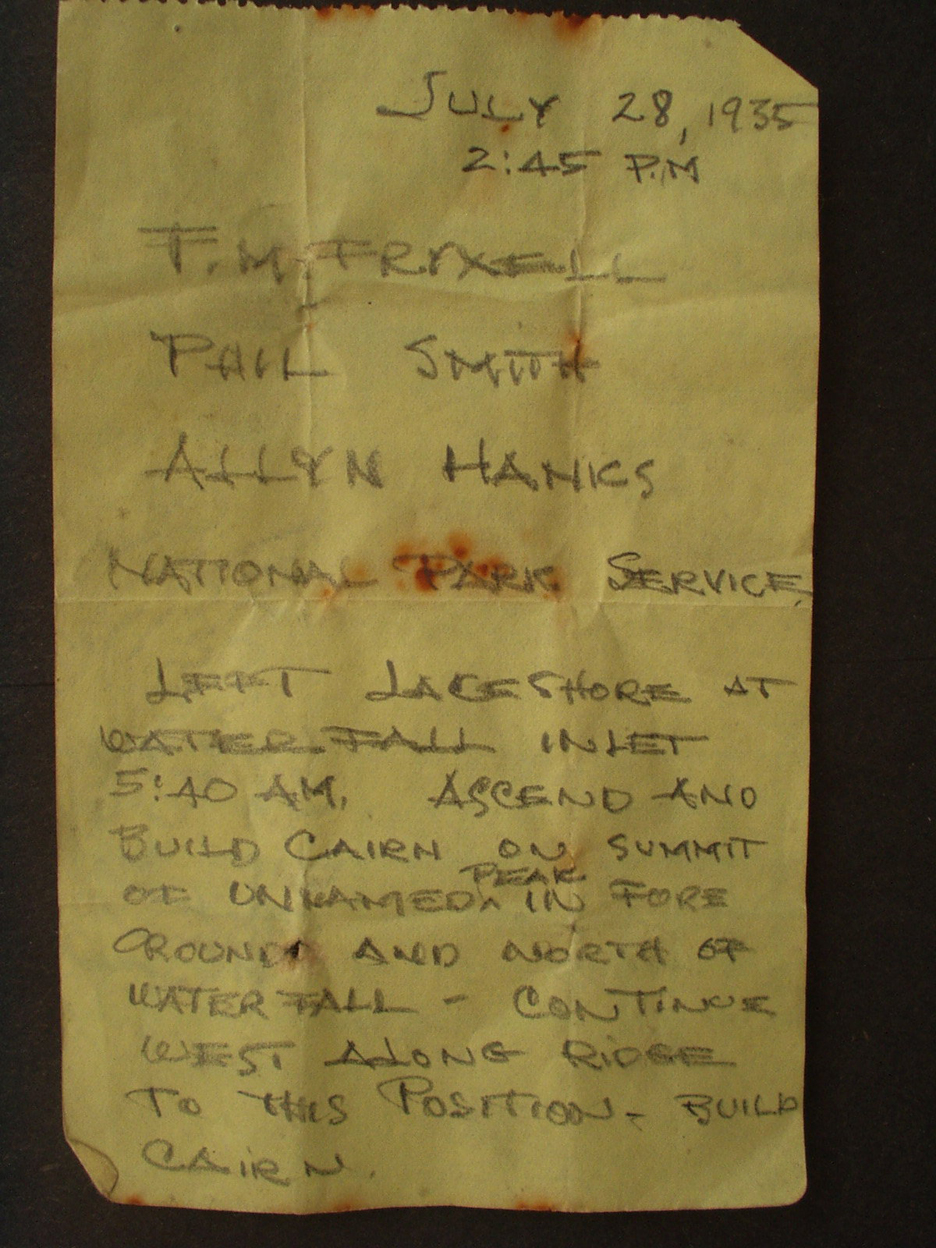 JULY 28, 1935
2:45 P.M
F.M. FRYXELL
PHIL SMITH
ALLYN HANKS
NATIONAL PARK SERVICE.
LEFT LAKESHORE AT
WATER FALL INLET
5:40 AM. ASCEND AND
BUILD CAIRN ON SUMMIT
OF UNNAMED PEAK IN FORE
GROUND AND NORTH OF
WATER FALL - CONTINUE
WEST ALONG RIDGE
TO THIS POSITION - BUILD
CAIRN.